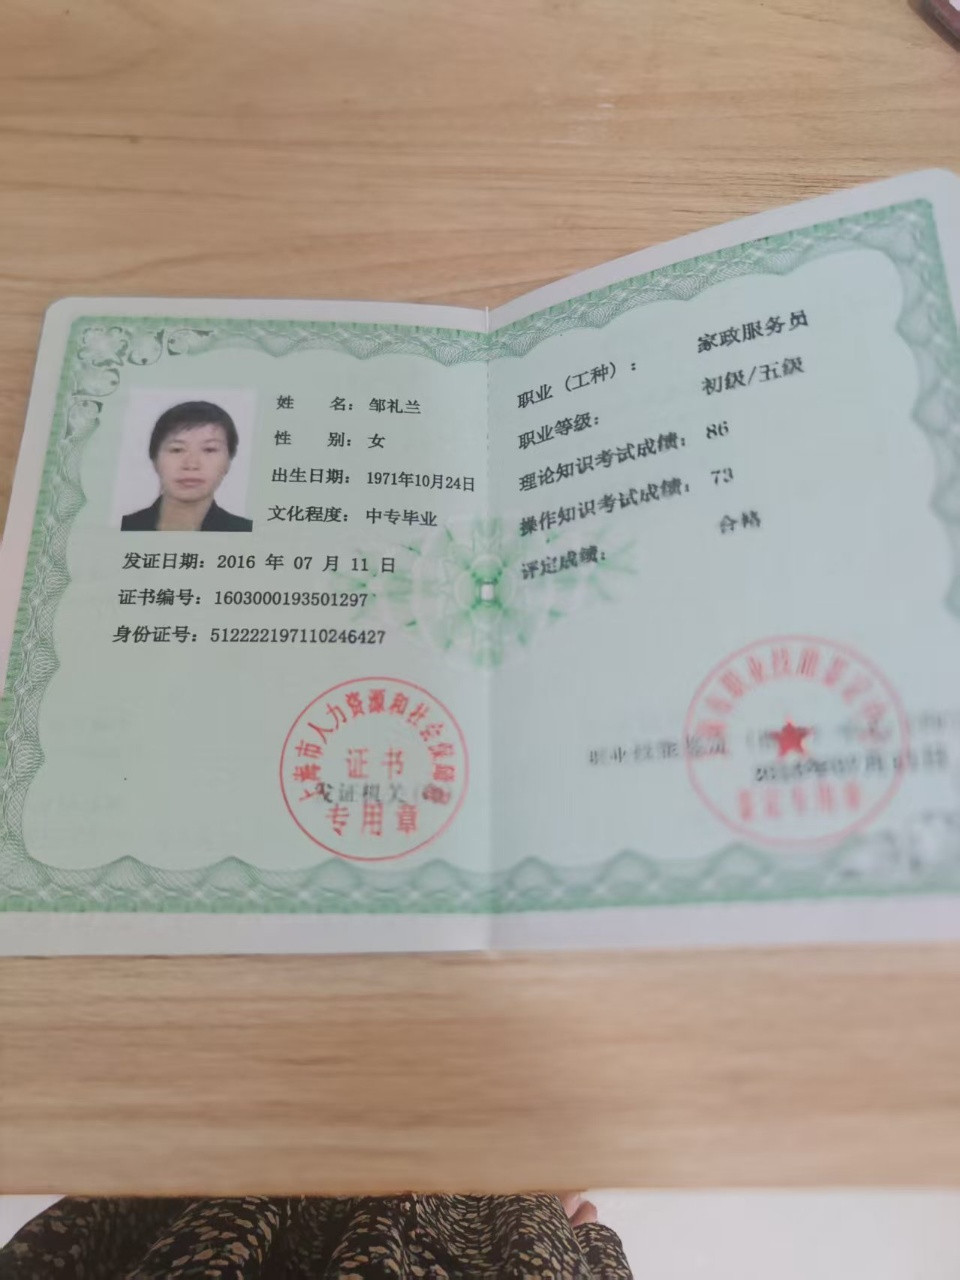 姓 名：邹礼兰
性 别：女
出生日期：1971年10月24日
文化程度：中专毕业
发证日期：2016 年 07 月 11 日
证书编号：1603000193501297
身份证号：512222197110246427
上海市人力资源和社会保障局
证书
发证机关
专用章
职业（工种）：家政服务员
职业等级：初级/五级
理论知识考试成绩：86
操作知识考试成绩：73
评定成绩：合格